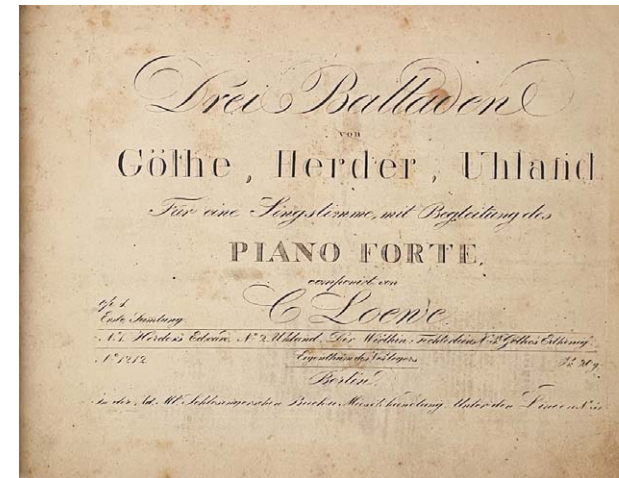 Drei Balladen
von
Göthe, Herder, Uhland
Für eine Singstimme, mit Begleitung des
PIANO FORTE,
componirt von
C. Loewe.
op. 1.
Erste Samlung
N. 1. Herders Edward. N° 2. Uhland. Der Wirthin Töchterlein N. 3. Göthes Erlkönig.
N° 1212. Eigenthum des Verlegers
Berlin,
in der Ad. Mt. Schlesingerschen Buch u. Musikhandlung. Unter den Linden N°